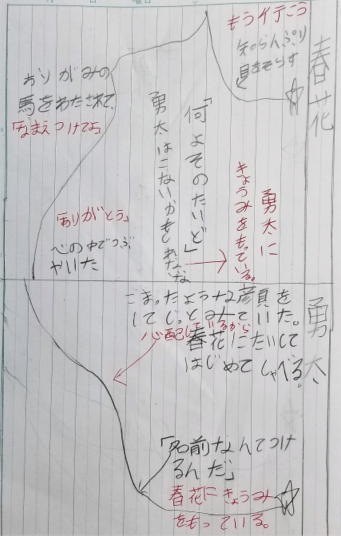 春花
もう行こう
知らんぷり
目をそらす
勇太に
きょうみをもっている。
「何よそのたいど」
勇太はこないかもしれないな
おりがみの
馬をわたされて、
「なまえつけてよ」
「ありがとう」
心の中でつぶ
やいた
勇太
こまったような顔を
してじっとみていた。
心配しているから
春花にたいして
はじめてしゃべる。
「名前なんてつけ
るんだ」
春花にきょうみ
をもっている。